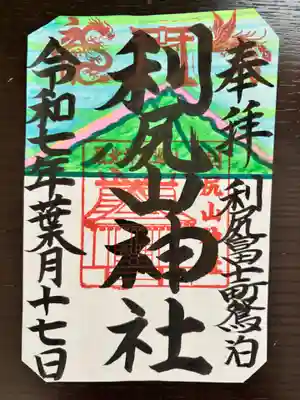 奉拝
利尻富士町鴛泊
利尻山神社
令和七年葉月十七日